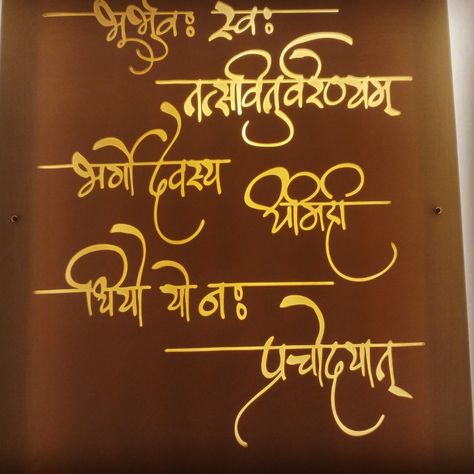 भूर्भुवः स्वः
तत्सवितुर्वरेण्यम्
भर्गो देवस्य
धिमही
धियो यो नः
प्रचोदयात्